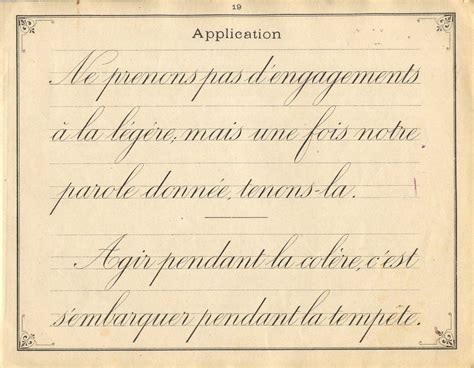 19
Application
Ne prenons pas d'engagements
à la légére, mais une fois notre
parole donnée, tenons-la.
Agir pendant la colère, c'est
s'embarquer pendant la tempête.